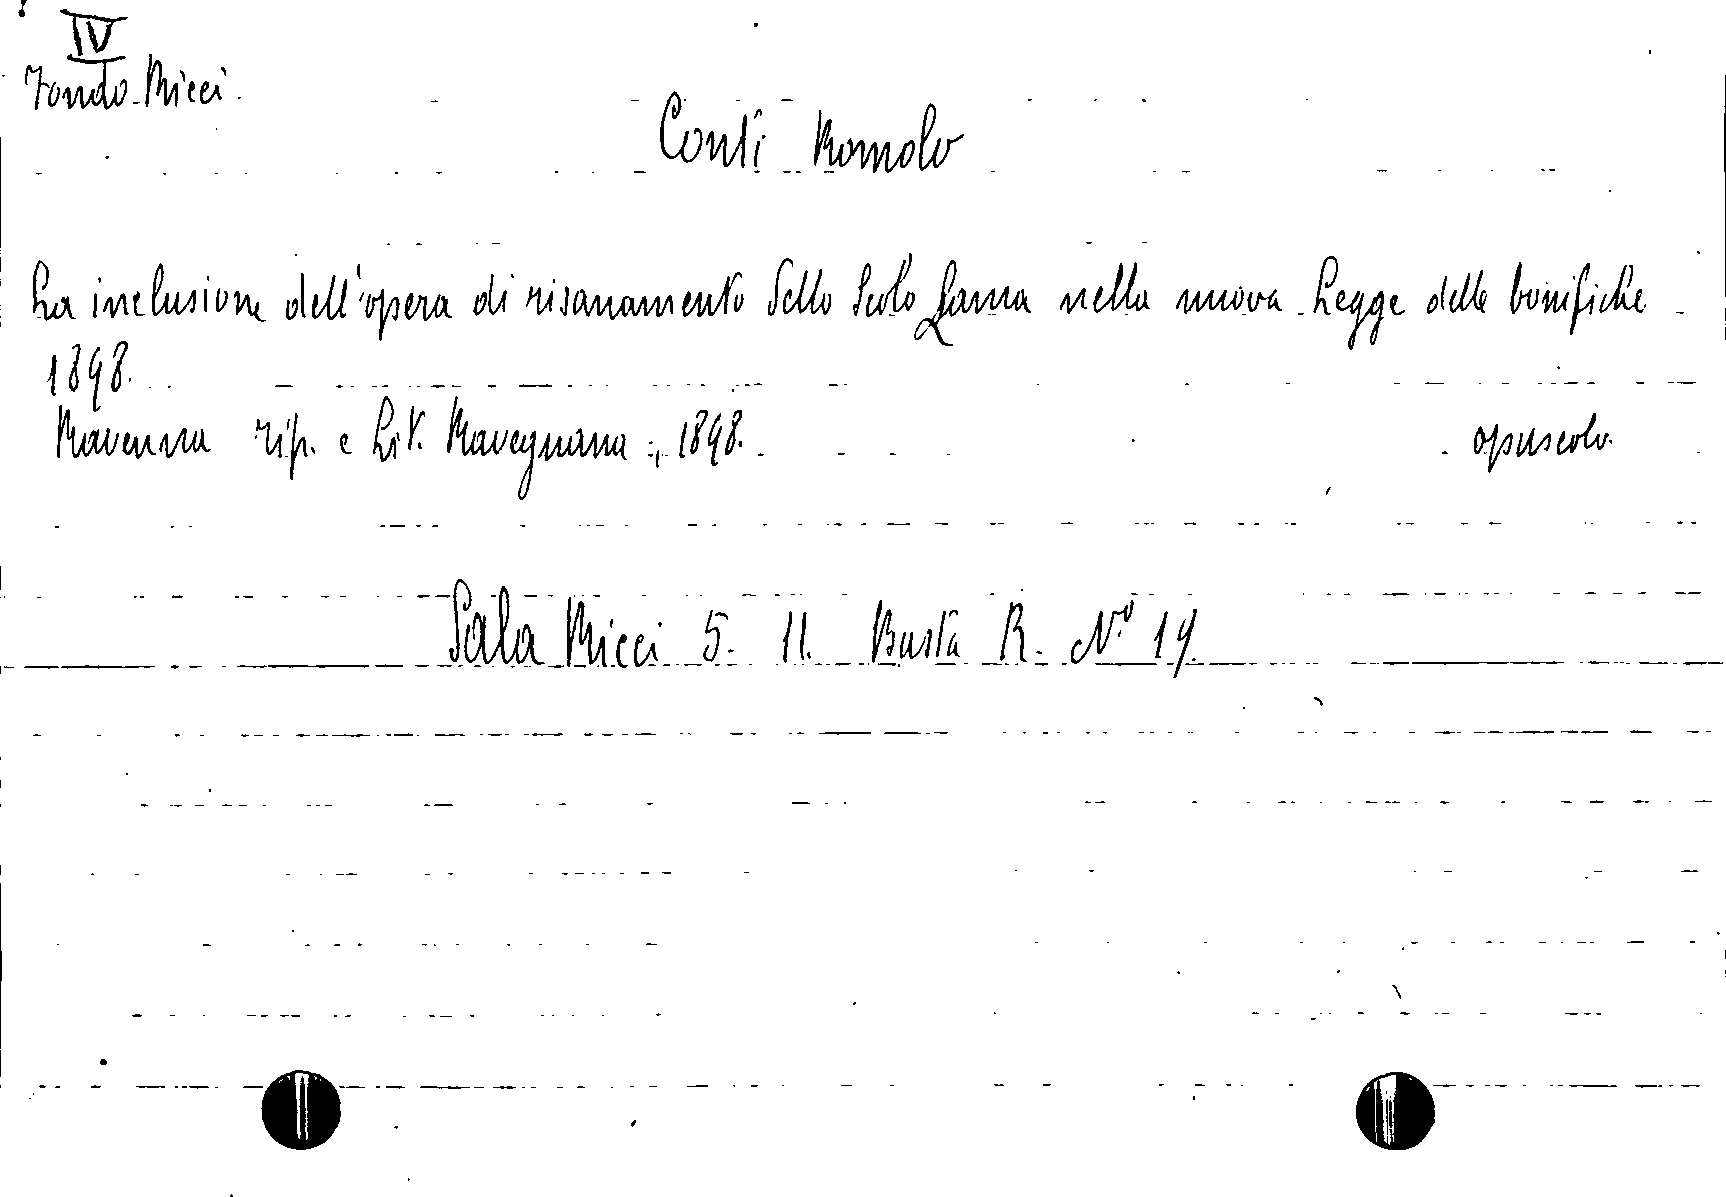 IV
Fondo Ricci.
Conti Romolo
La inclusione dell'opera di risanamento dello Scolo Lama nella nuova Legge delle bonifiche
1898.
Ravenna Tip. e Lit. Ravegnana, 1898. opuscolo.
Sala Ricci 5. 11. Busta R. N.º 19.